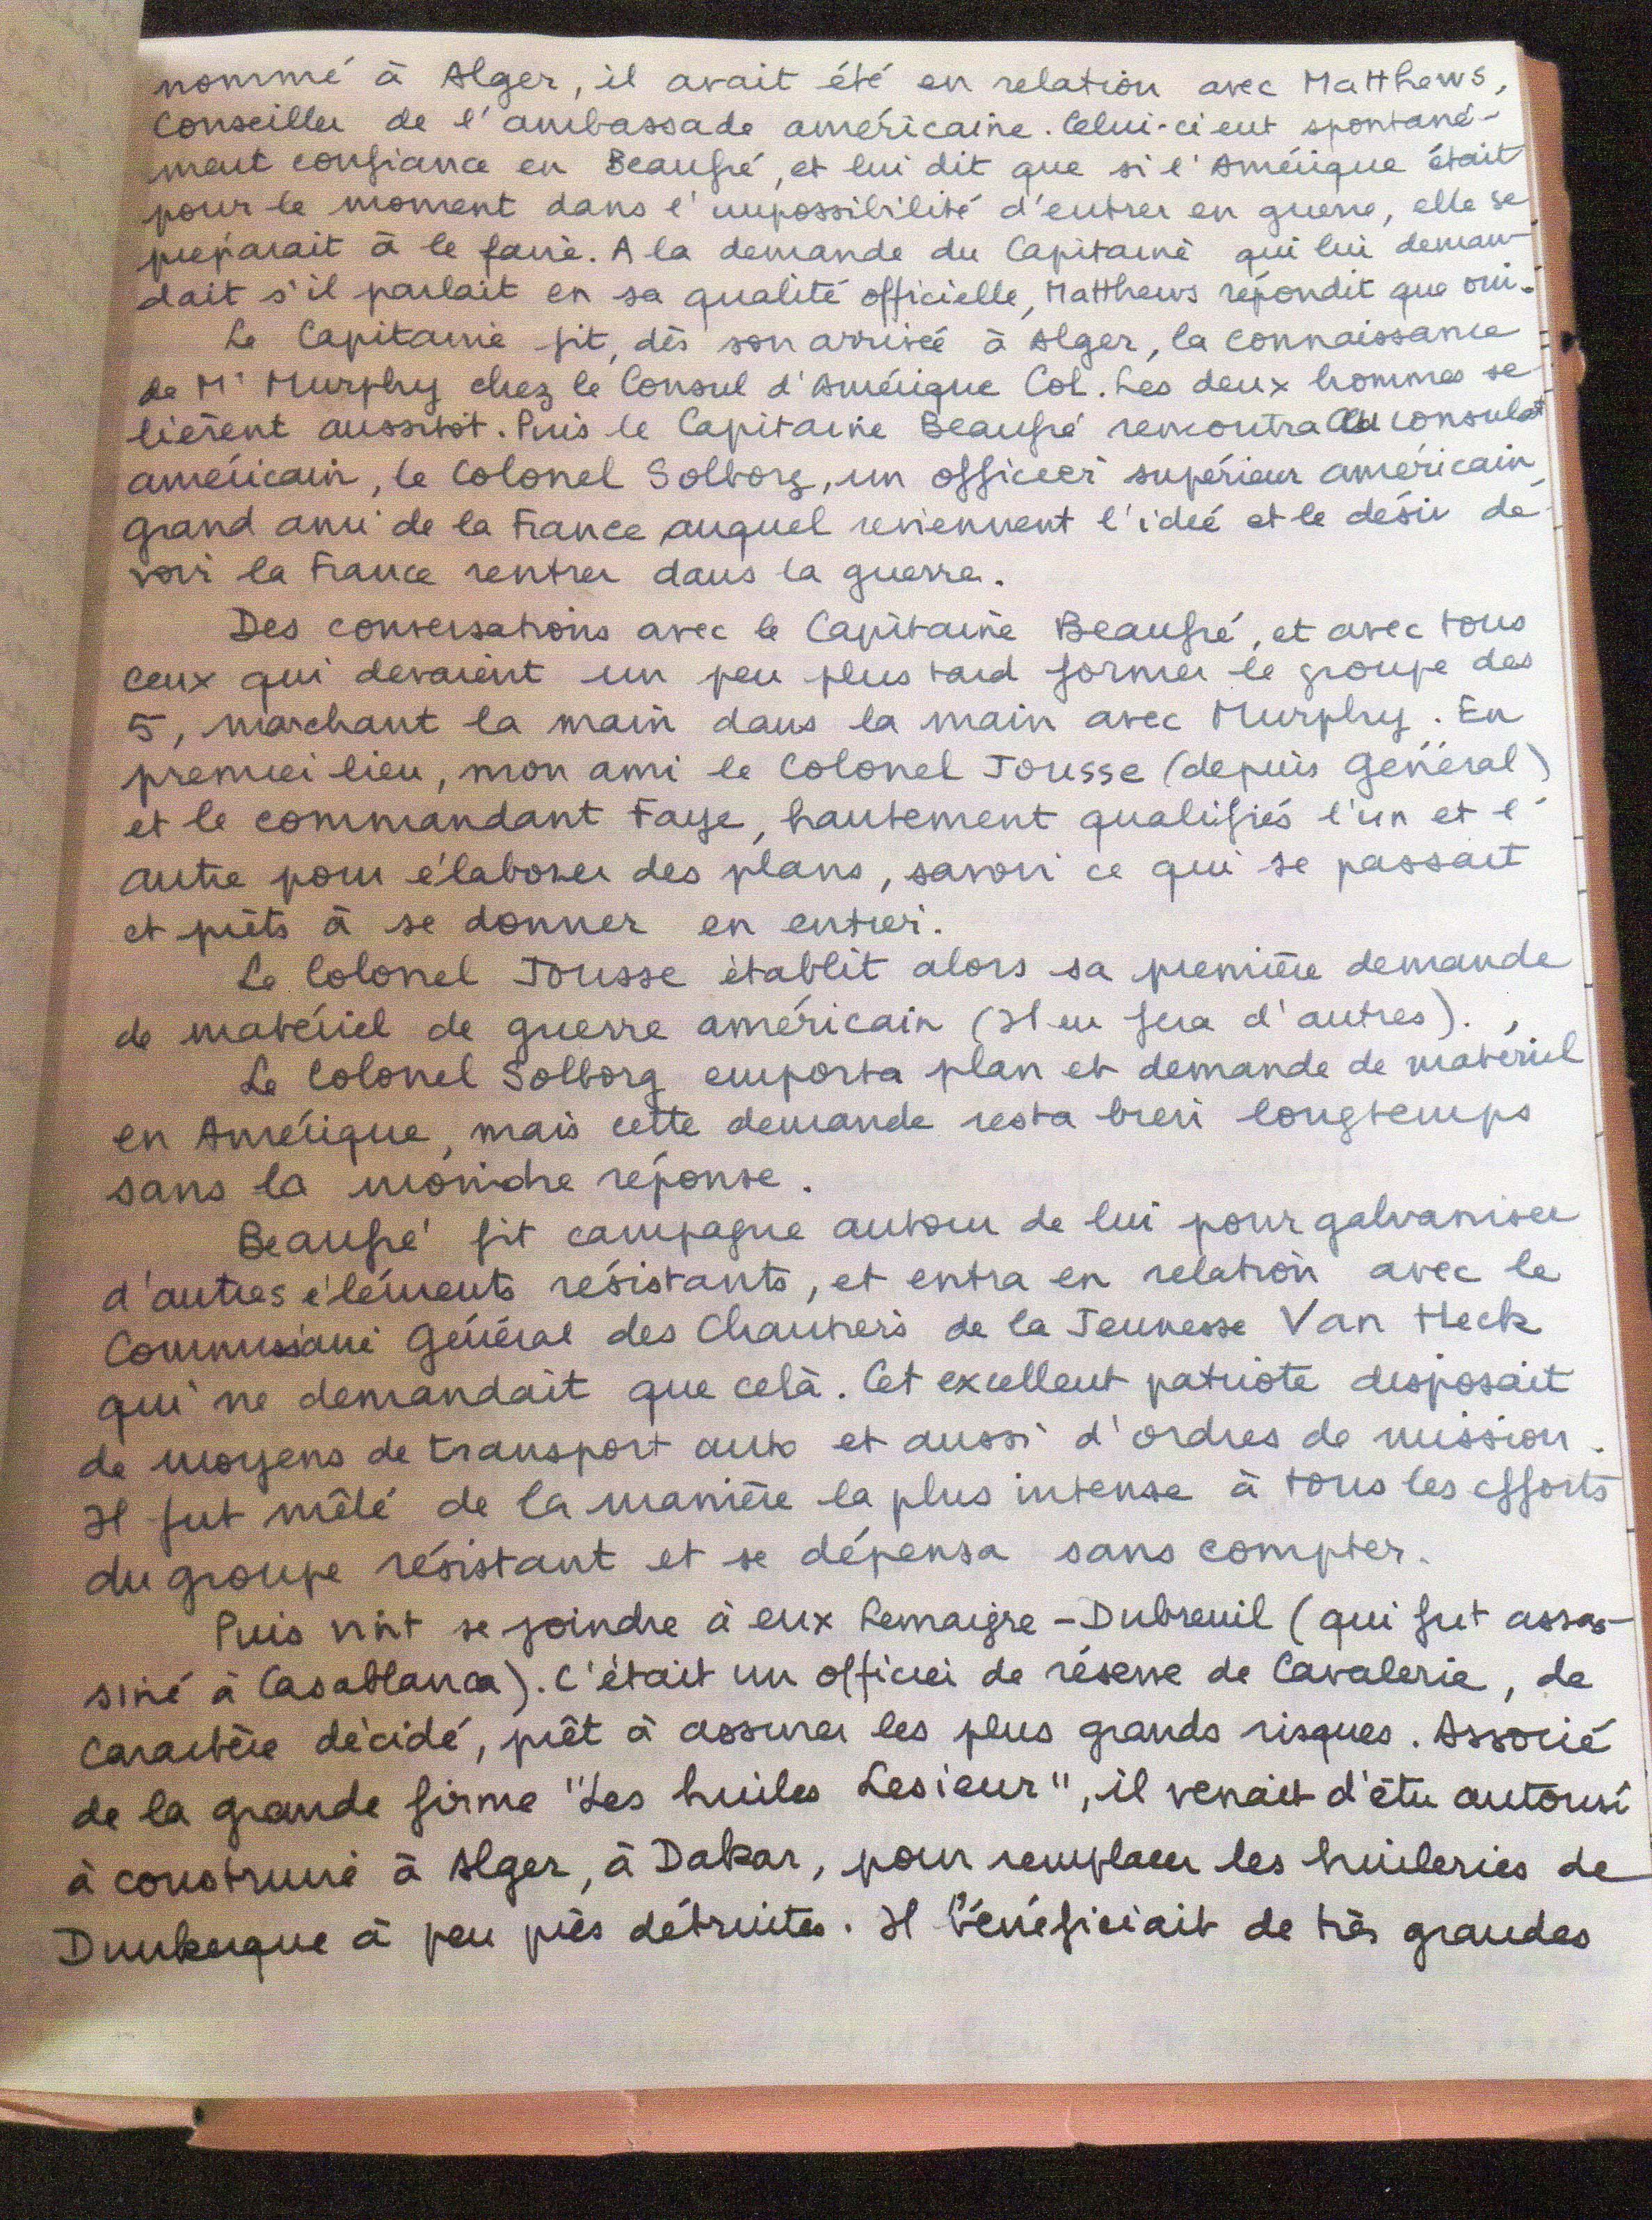 nommé à Alger, il avait été en relation avec Matthews,
Conseiller de l'ambassade américaine. Celui-ci eut spontané-
ment confiance en Beaufré, et lui dit que si l'Amérique était
pour le moment dans l'impossibilité d'entrer en guerre, elle se
préparait à le faire. A la demande du Capitaine qui lui deman-
dait s'il parlait en sa qualité officielle, Matthews répondit que oui.
Le Capitaine fit, dès son arrivée à Alger, la connaissance
de Mr Murphy chez le Consul d'Amérique Col. Les deux hommes se
lièrent aussitôt. Puis le Capitaine Beaufré rencontra au consulat
américain, le Colonel Solborg, un officier supérieur américain,
grand ami de la France auquel reviennent l'idée et le désir de
voir la France rentrer dans la guerre.
Des conversations avec le Capitaine Beaufré, et avec tous
ceux qui devaient un peu plus tard former le groupe des
5, marchant la main dans la main avec Murphy. En
premier lieu, mon ami le Colonel Jousse (depuis Général)
et le commandant Faye, hautement qualifiés l'un et l'
autre pour élaborer des plans, savoir ce qui se passait
et prêts à se donner en entier.
Le Colonel Jousse établit alors sa première demande
de matériel de guerre américain (Il en fera d'autres).
Le Colonel Solborg emporta plan et demande de matériel
en Amérique, mais cette demande resta bien longtemps
sans la moindre réponse.
Beaufré fit campagne autour de lui pour galvaniser
d'autres éléments résistants, et entra en relation avec le
Commissaire Général des Chantiers de la Jeunesse Van Heck
qui ne demandait que celà. Cet excellent patriote disposait
de moyens de transport auto et aussi d'ordres de mission.
Il fut mêlé de la manière la plus intense à tous les efforts
du groupe résistant et se dépensa sans compter.
Puis vint se joindre à eux Lemaigre-Dubreuil (qui fut assas-
siné à Casablanca). C'était un officier de réserve de Cavalerie, de
caractère décidé, prêt à assurer les plus grands risques. Associé
de la grande firme "Les huiles Lesieur", il venait d'être autorisé
à construire à Alger, à Dakar, pour remplacer les huileries de
Dunkerque à peu près détruites. Il bénéficiait de très grandes